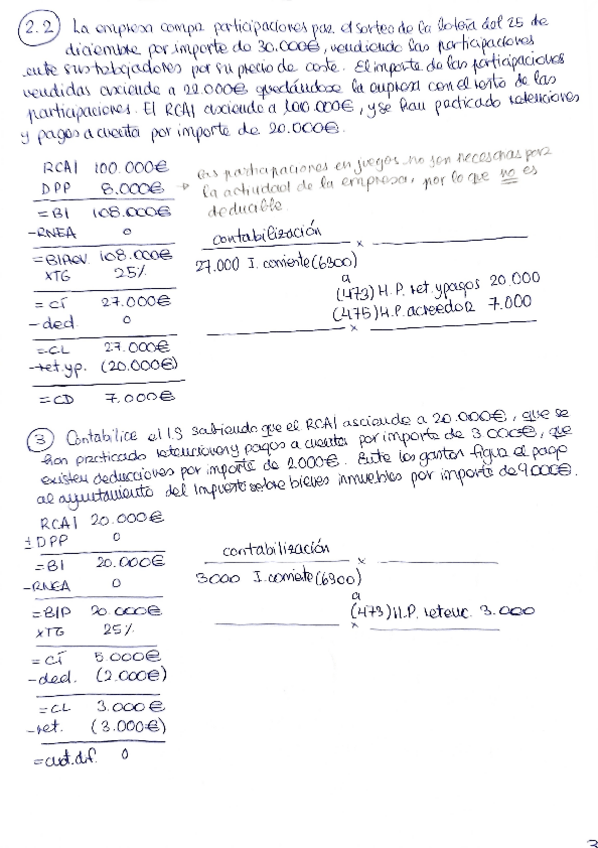 2.2) La empresa compra participaciones para el sorteo de la lotería del 25 de
diciembre por importe de 30.000€, vendiendo las participaciones
entre sus trabajadores por su precio de coste. El importe de las participaciones
vendidas asciende a 22.000€ quedándose la empresa con el resto de las
participaciones. El RCAI asciende a 100.000€, y se han practicado retenciones
y pagos a cuenta por importe de 20.000€.
RCAI 100.000€
DPP 8.000€ → las participaciones en juegos no son necesarias para
la actividad de la empresa, por lo que no es
deducible.
= BI 108.000€
- RNEA 0
= BIPREV. 108.000€
x TG 25%
= CÍ 27.000€
- ded. 0
= CL 27.000€
- ret.yp. (20.000€)
= CD 7.000€
contabilización
x
27.000 I. corriente (6300)
a
(473) H.P. ret. y pagos 20.000
(475) H.P. acreedora 7.000
x
3) Contabilice el IS sabiendo que el RCAI asciende a 20.000€, que se
han practicado retenciones y pagos a cuenta por importe de 3000€, que
existen deducciones por importe de 2000€. Entre los gastos figura el pago
al ayuntamiento del Impuesto sobre bienes inmuebles por importe de 9000€.
RCAI 20.000€
± DPP 0
= BI 20.000€
- RNEA 0
= BIP 20.000€
x TG 25%
= CÍ 5.000€
- ded. (2.000€)
= CL 3.000€
- ret. (3.000€)
= cuot.dif. 0
contabilización
x
3000 I. corriente (6300)
a
(473) H.P. retenc. 3.000
x
3